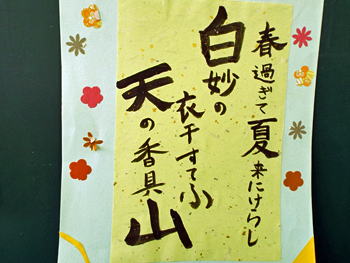 春過ぎて夏来にけらし
白妙の
衣干すてふ
天の香具山